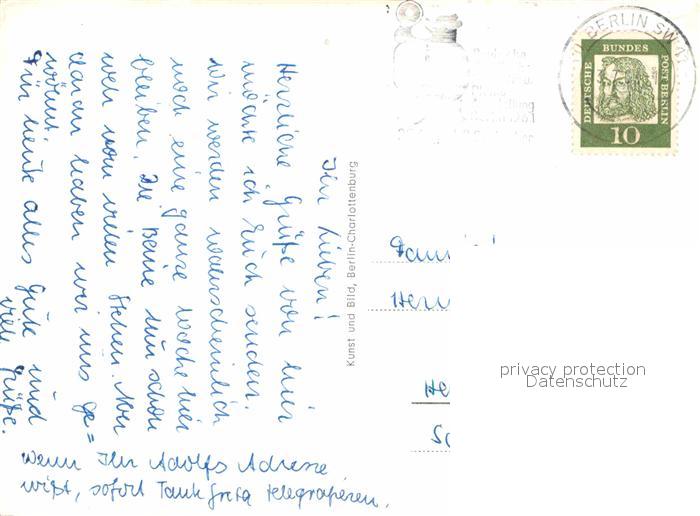 Ihr Lieben!
Herzliche Grüße von hier
möchte ich Euch senden.
Wir werden warscheinlich
noch eine ganze Woche hier
bleiben. Die Beine tun schon
weh vom vielen Stehen. Aber
daran haben wir uns ge=
wöhnt.
Für heute alles Gute und
viele Grüße.
Wenn Ihr Adolfs Adresse
wißt, sofort Tante Greta telegrafieren.
Kunst und Bild, Berlin-Charlottenburg
BERLIN SW
1961
DEUTSCHE BUNDES POST BERLIN
10
privacy protection
Datenschutz